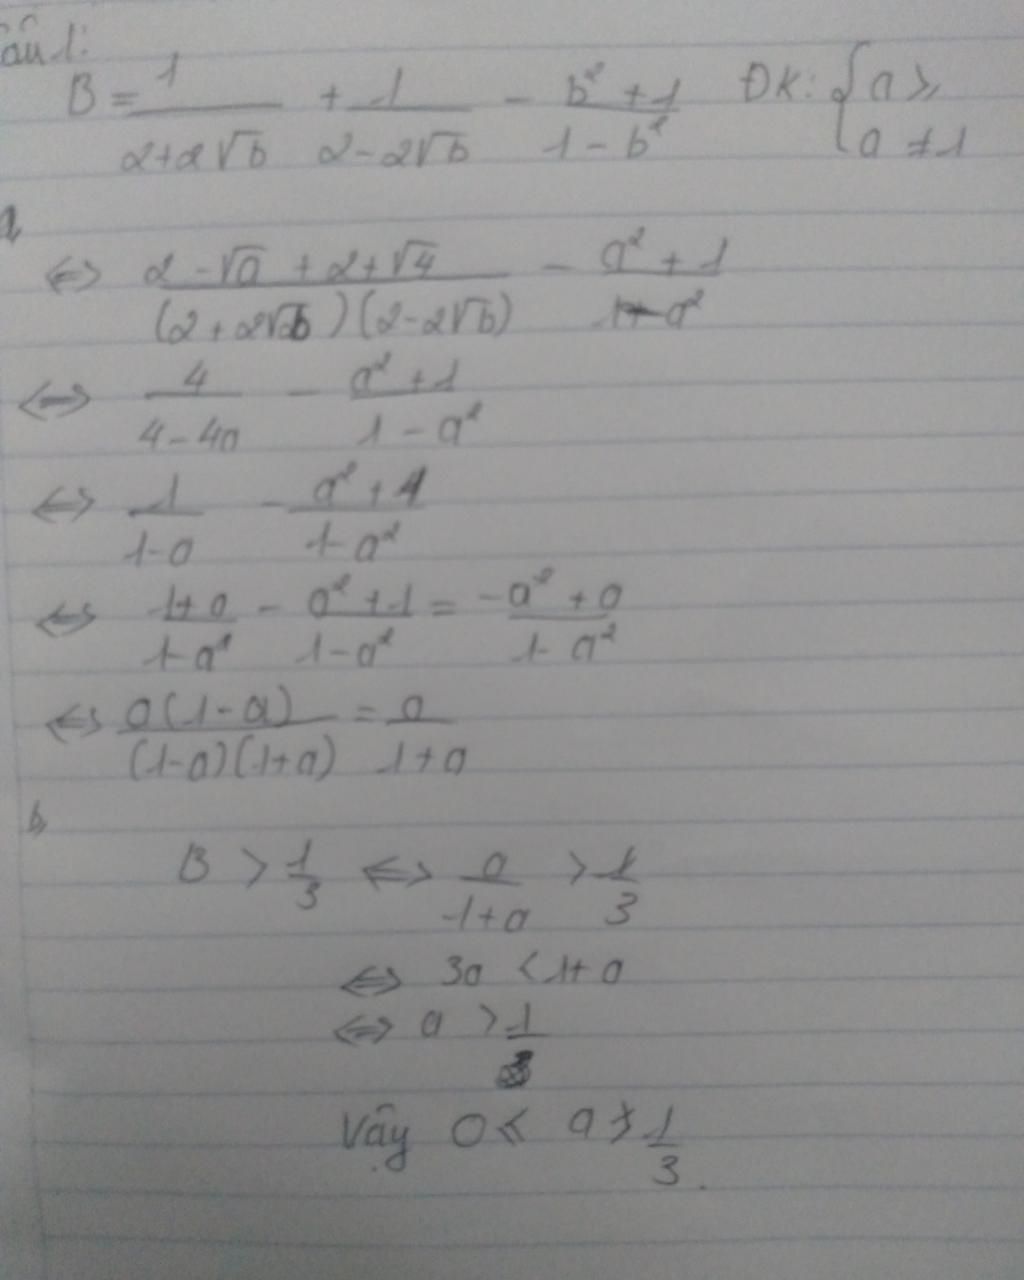 Câu 1:
B = 1/(2+2√b) + 1/(2-2√b) - (b²+1)/(1-b²) ĐK: { a ≥
a ≠ 1
a,
⇔ (2-√a+2+√4)/((2+2√b)(2-2√b)) - (a²+1)/(1-a²)
⇔ 4/(4-4a) - (a²+1)/(1-a²)
⇔ 1/(1-a) - (a²+1)/(1-a²)
⇔ (1+a)/(1-a²) - (a²+1)/(1-a²) = (-a²+a)/(1-a²)
⇔ a(1-a)/((1-a)(1+a)) = a/(1+a)
b,
B > 1/3 ⇔ a/(1+a) > 1/3
⇔ 3a < 1+a
⇔ a > 1/
Vậy 0 ≤ a 1/3.